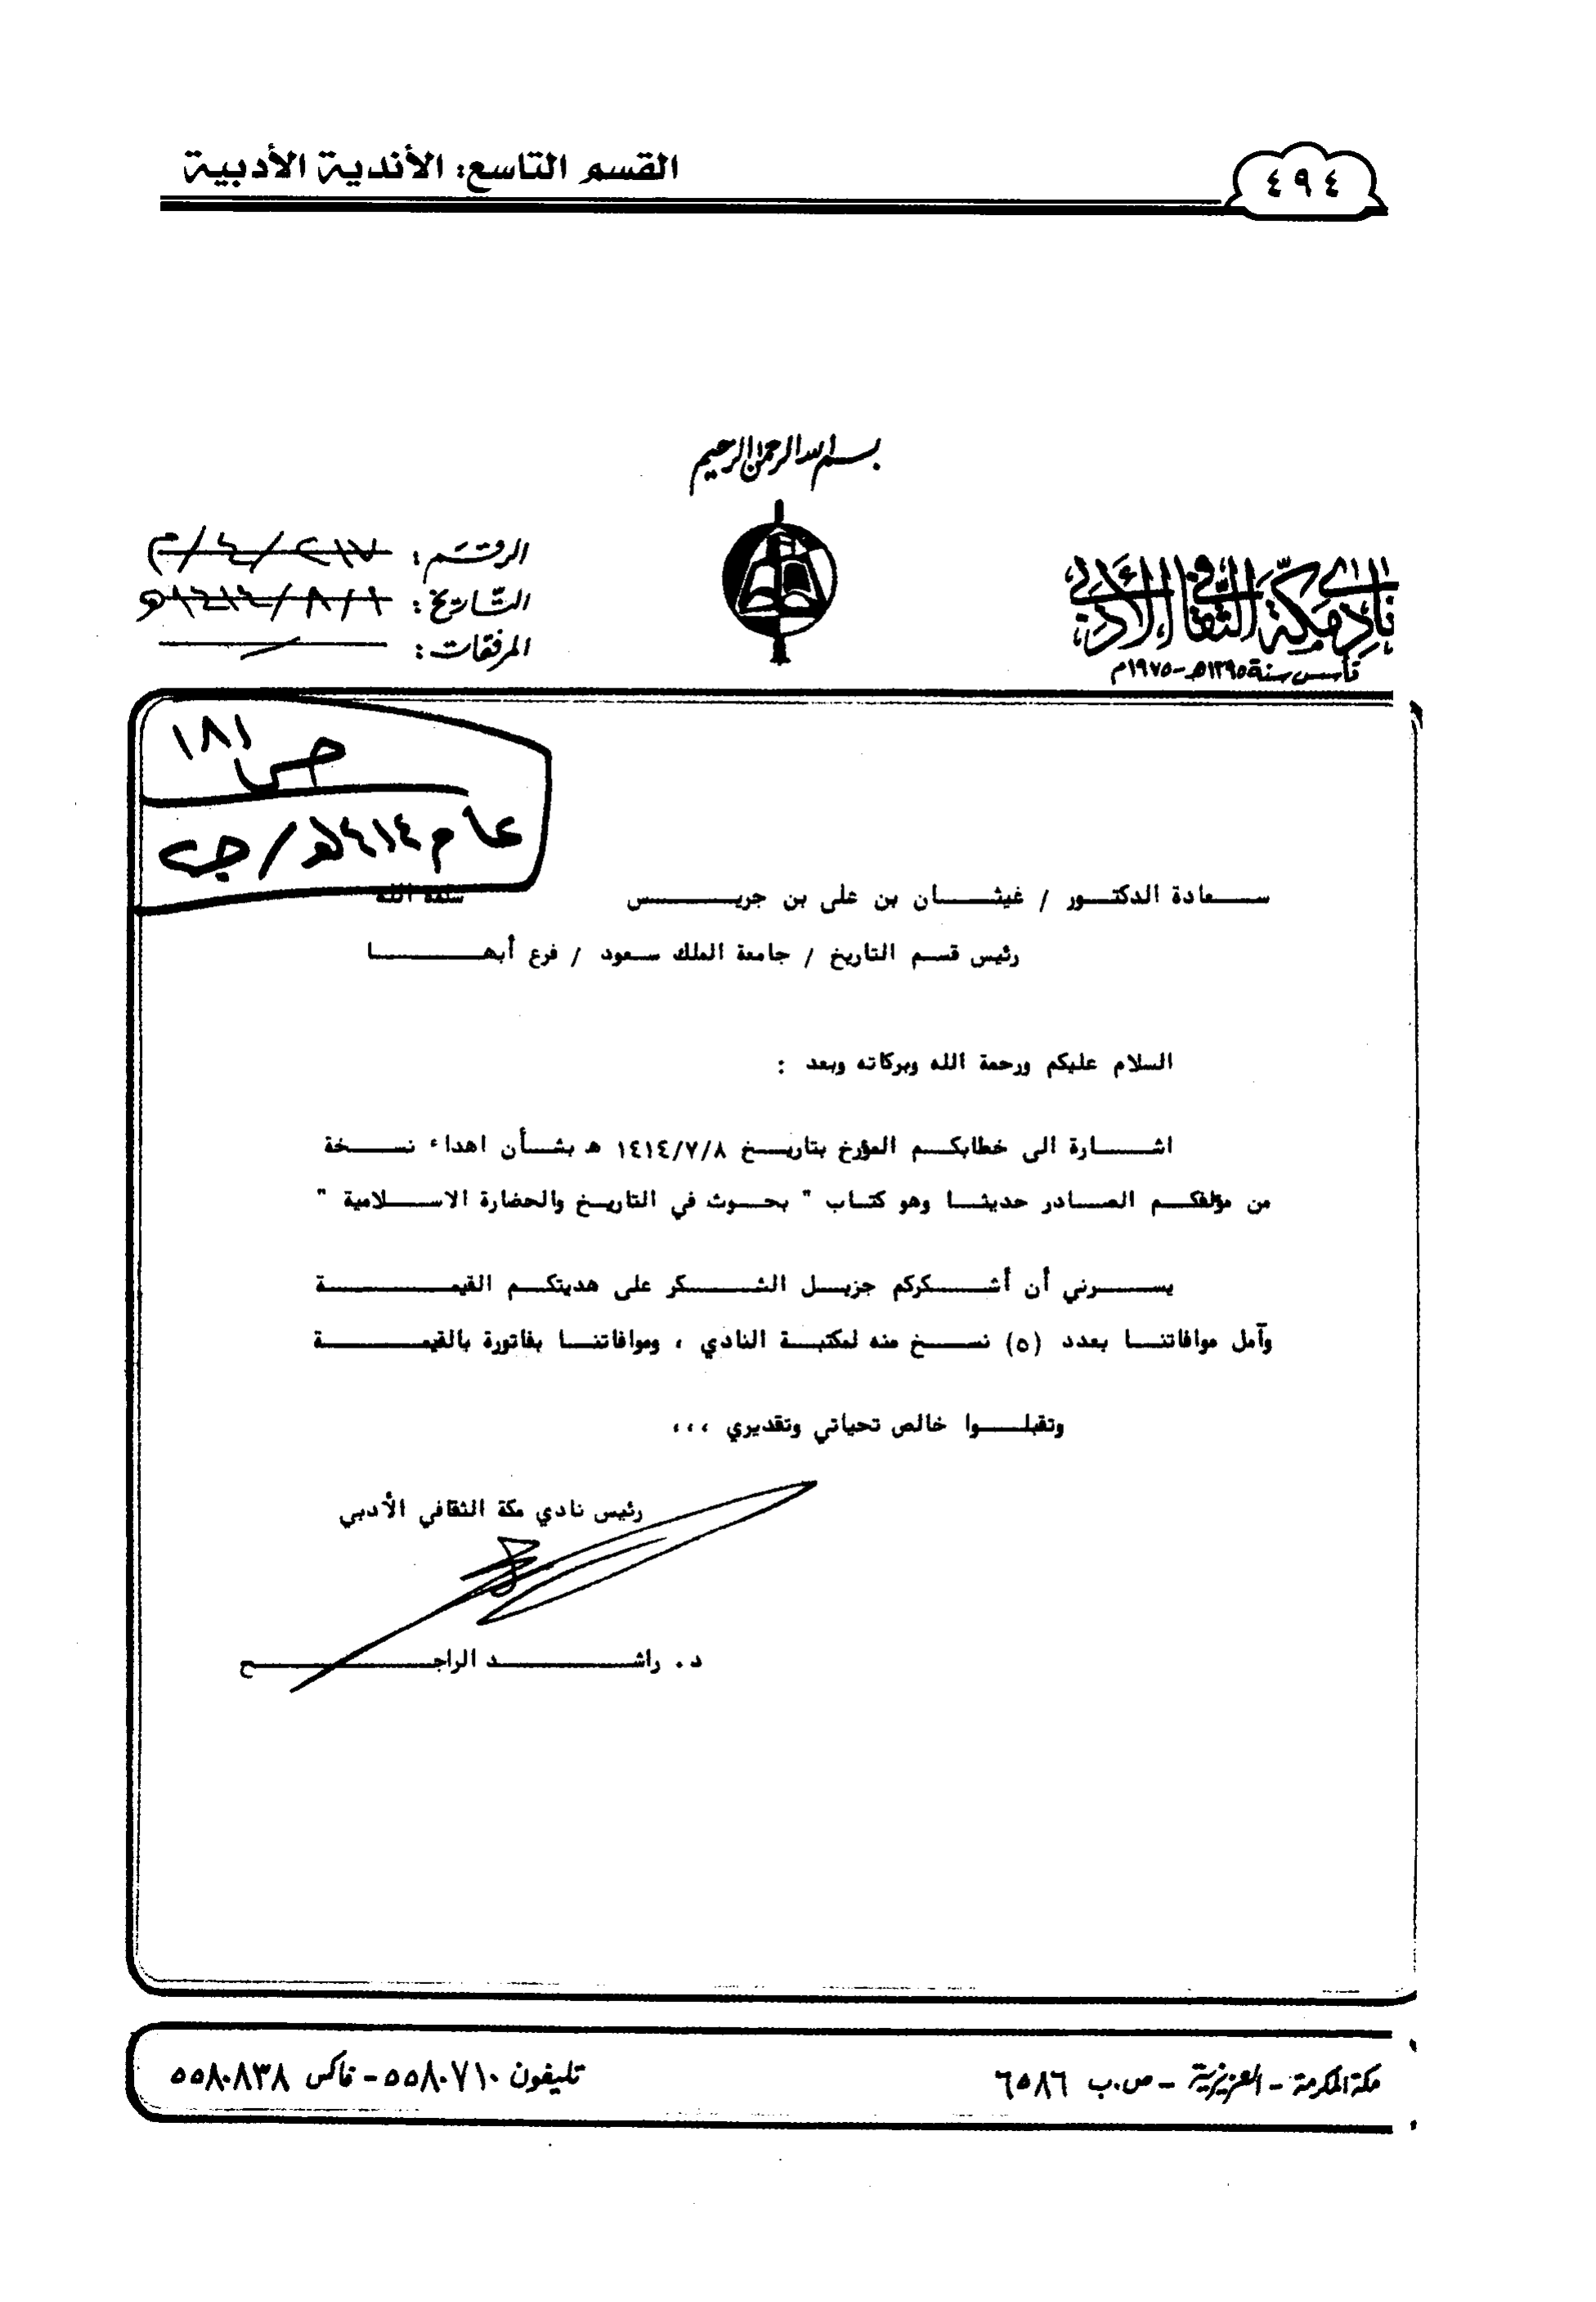 القسم التاسع: الأندية الأدبية
٤٩٤
بسم الله الرحمن الرحيم
نادي مكة الثقافي الأدبي
تأسس سنة ١٣٩٥هـ - ١٩٧٥م
الرقم: ٢١٧/٤/م
التاريخ: ١/٨/١٤١٤هـ
المرفقات:
ص ١٨١
عام ١٤١٤هـ/جـ٢
سعادة الدكتور / غيثان بن على بن جريس سلمه الله
رئيس قسم التاريخ / جامعة الملك سعود / فرع أبها
السلام عليكم ورحمة الله وبركاته وبعد :
اشارة الى خطابكم المؤرخ بتاريخ ١٤١٤/٧/٨ هـ بشأن اهداء نسخة
من مؤلفكم الصادر حديثا وهو كتاب " بحوث في التاريخ والحضارة الاسلامية "
يسرني أن أشكركم جزيل الشكر على هديتكم القيمة
وآمل موافاتنا بعدد (٥) نسخ منه لمكتبة النادي ، وموافاتنا بفاتورة بالقيمة
وتقبلوا خالص تحياتي وتقديري ،،،
رئيس نادي مكة الثقافي الأدبي
د. راشد الراجح
مكة المكرمة - العزيزية - ص.ب ٦٥٨٦
تليفون ٥٥٨٠٧١٠ - فاكس ٥٥٨٠٨٣٨